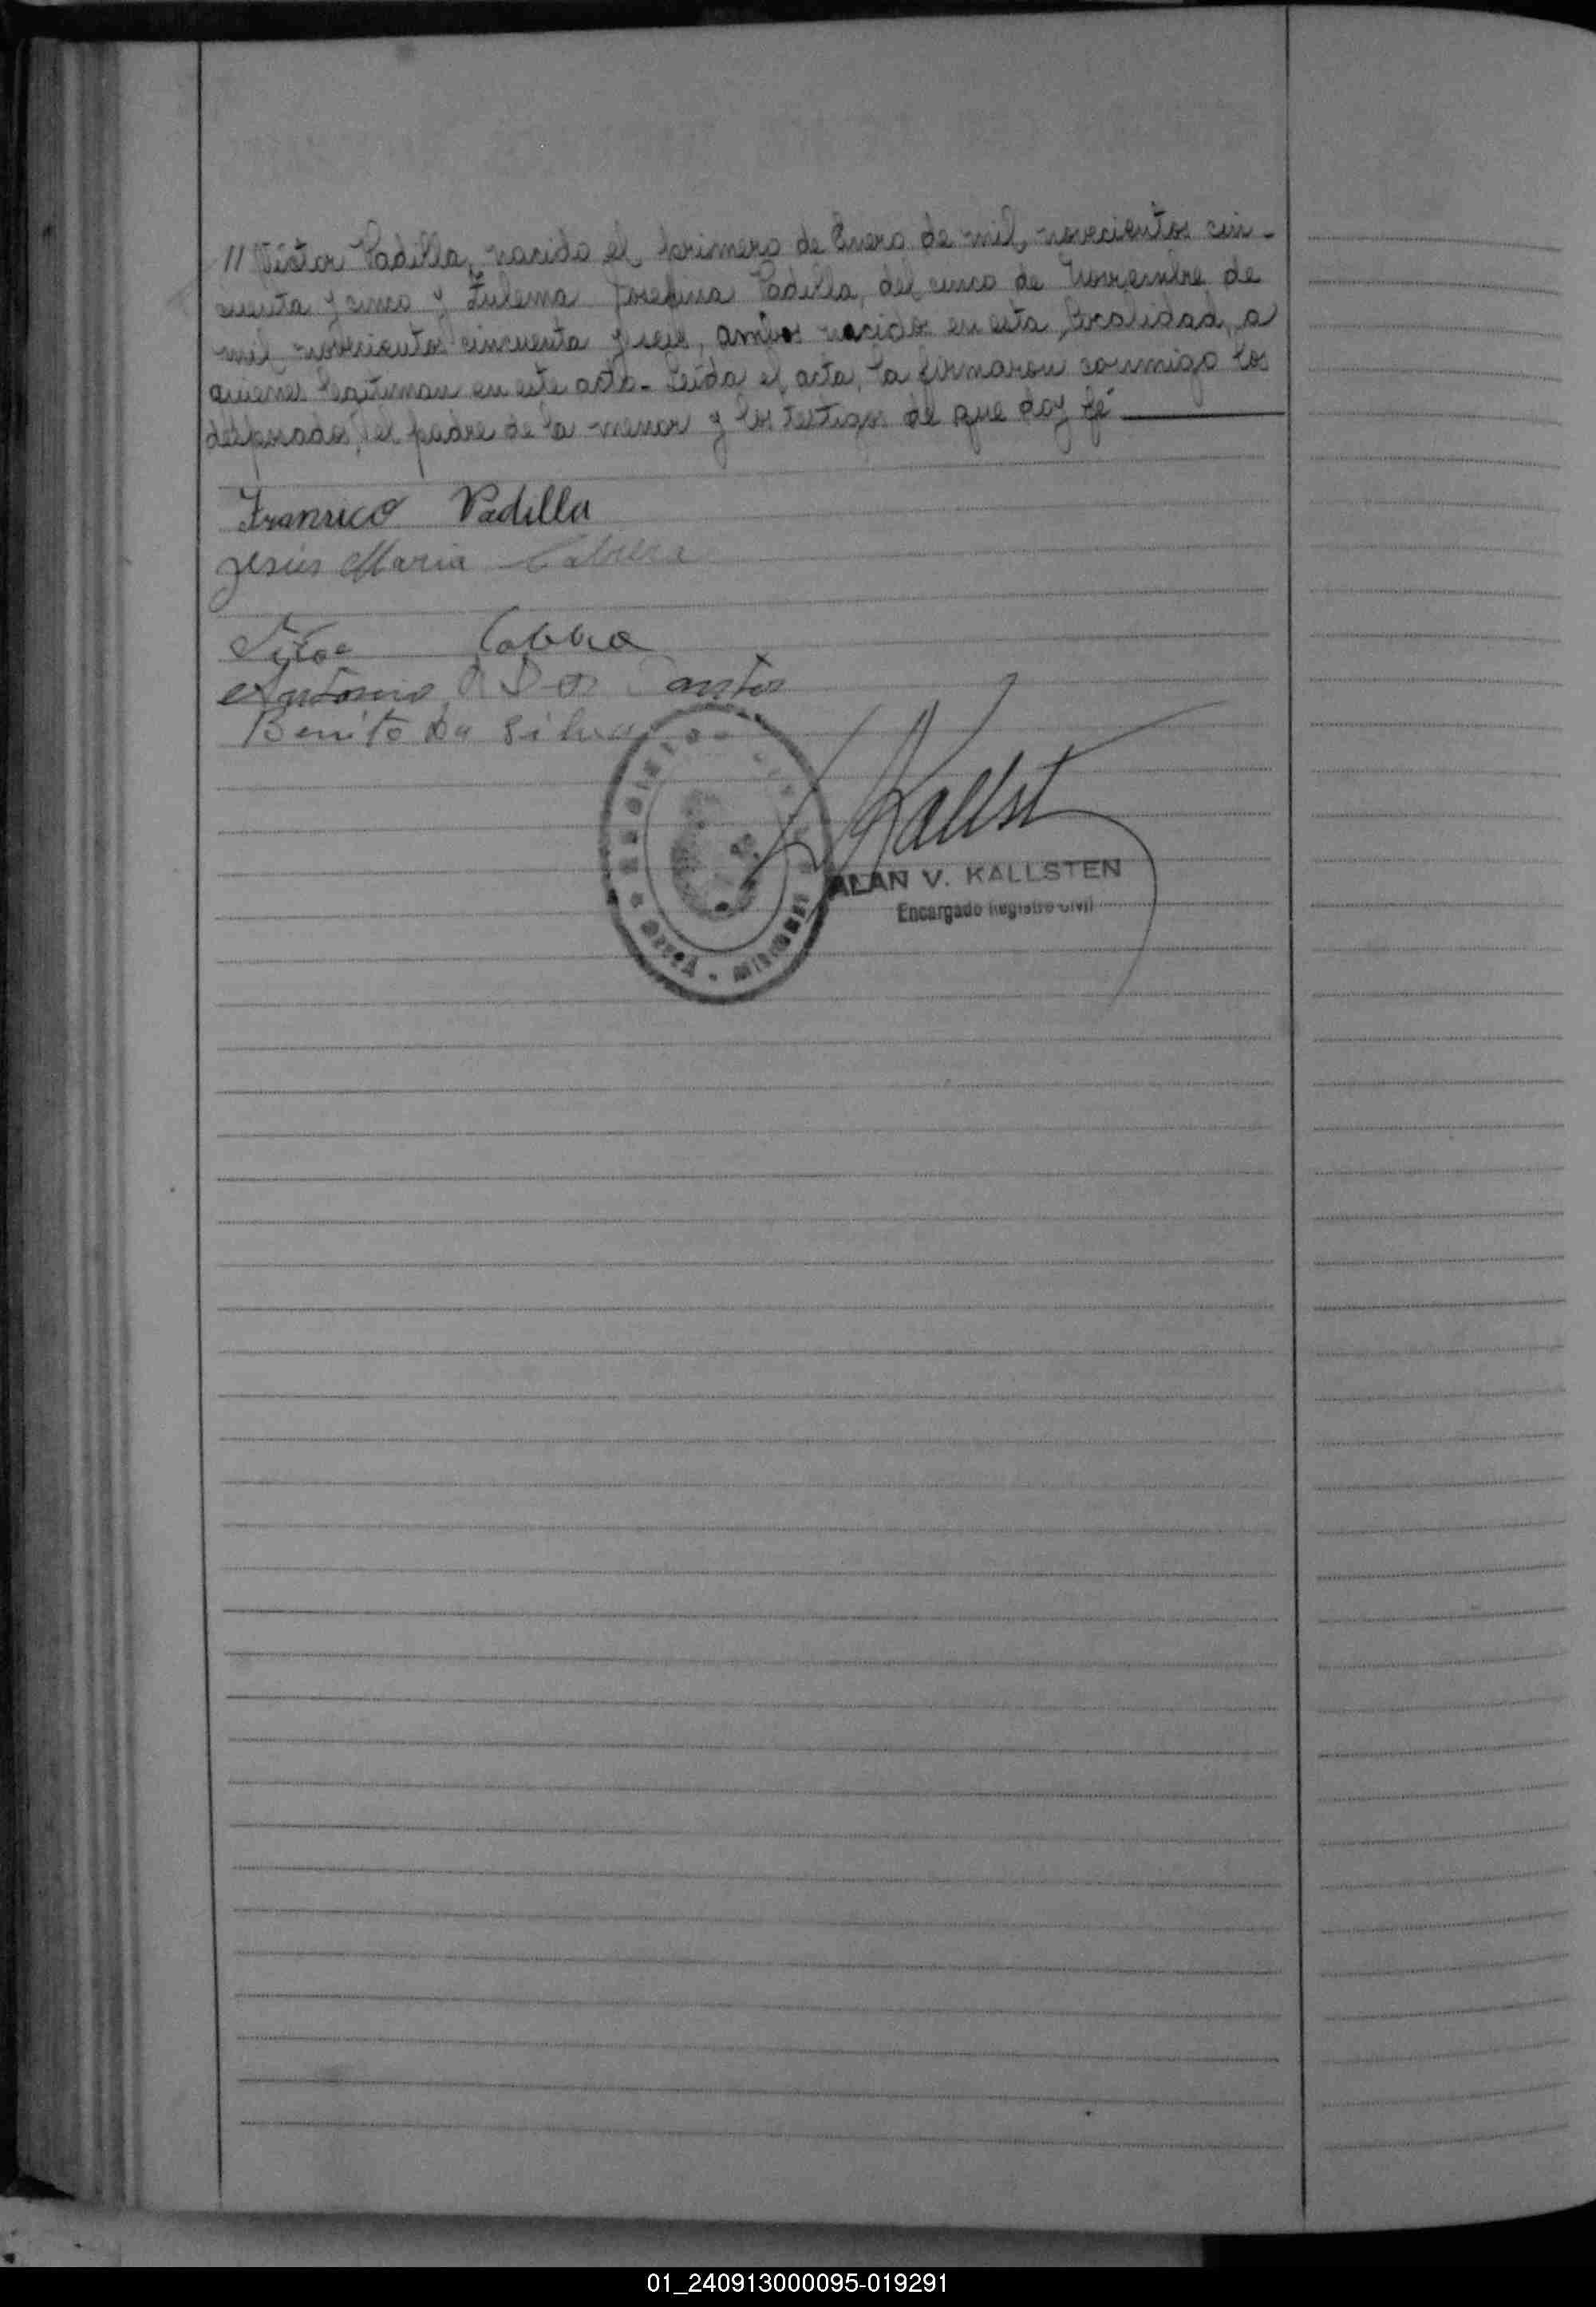 // Victor Padilla, nacido el primero de Enero de mil novecientos cin-
cuenta y cinco y Zulema Josefina Padilla, del cinco de Noviembre de
mil novecientos cincuenta y seis, ambos nacidos en esta localidad, a
quienes legitiman en este acto. Leída el acta, la firmaron conmigo los
desposados, el padre de la menor y los testigos de que doy fé
Fransico Padilla
Jesús Maria Cabrera
Antonio Dos Santos
Benito Da Silva
Kallst
ALAN V. KALLSTEN
Encargado Registro Civil
REGISTRO
OBERÁ - MISIONES
01_240913000095-019291